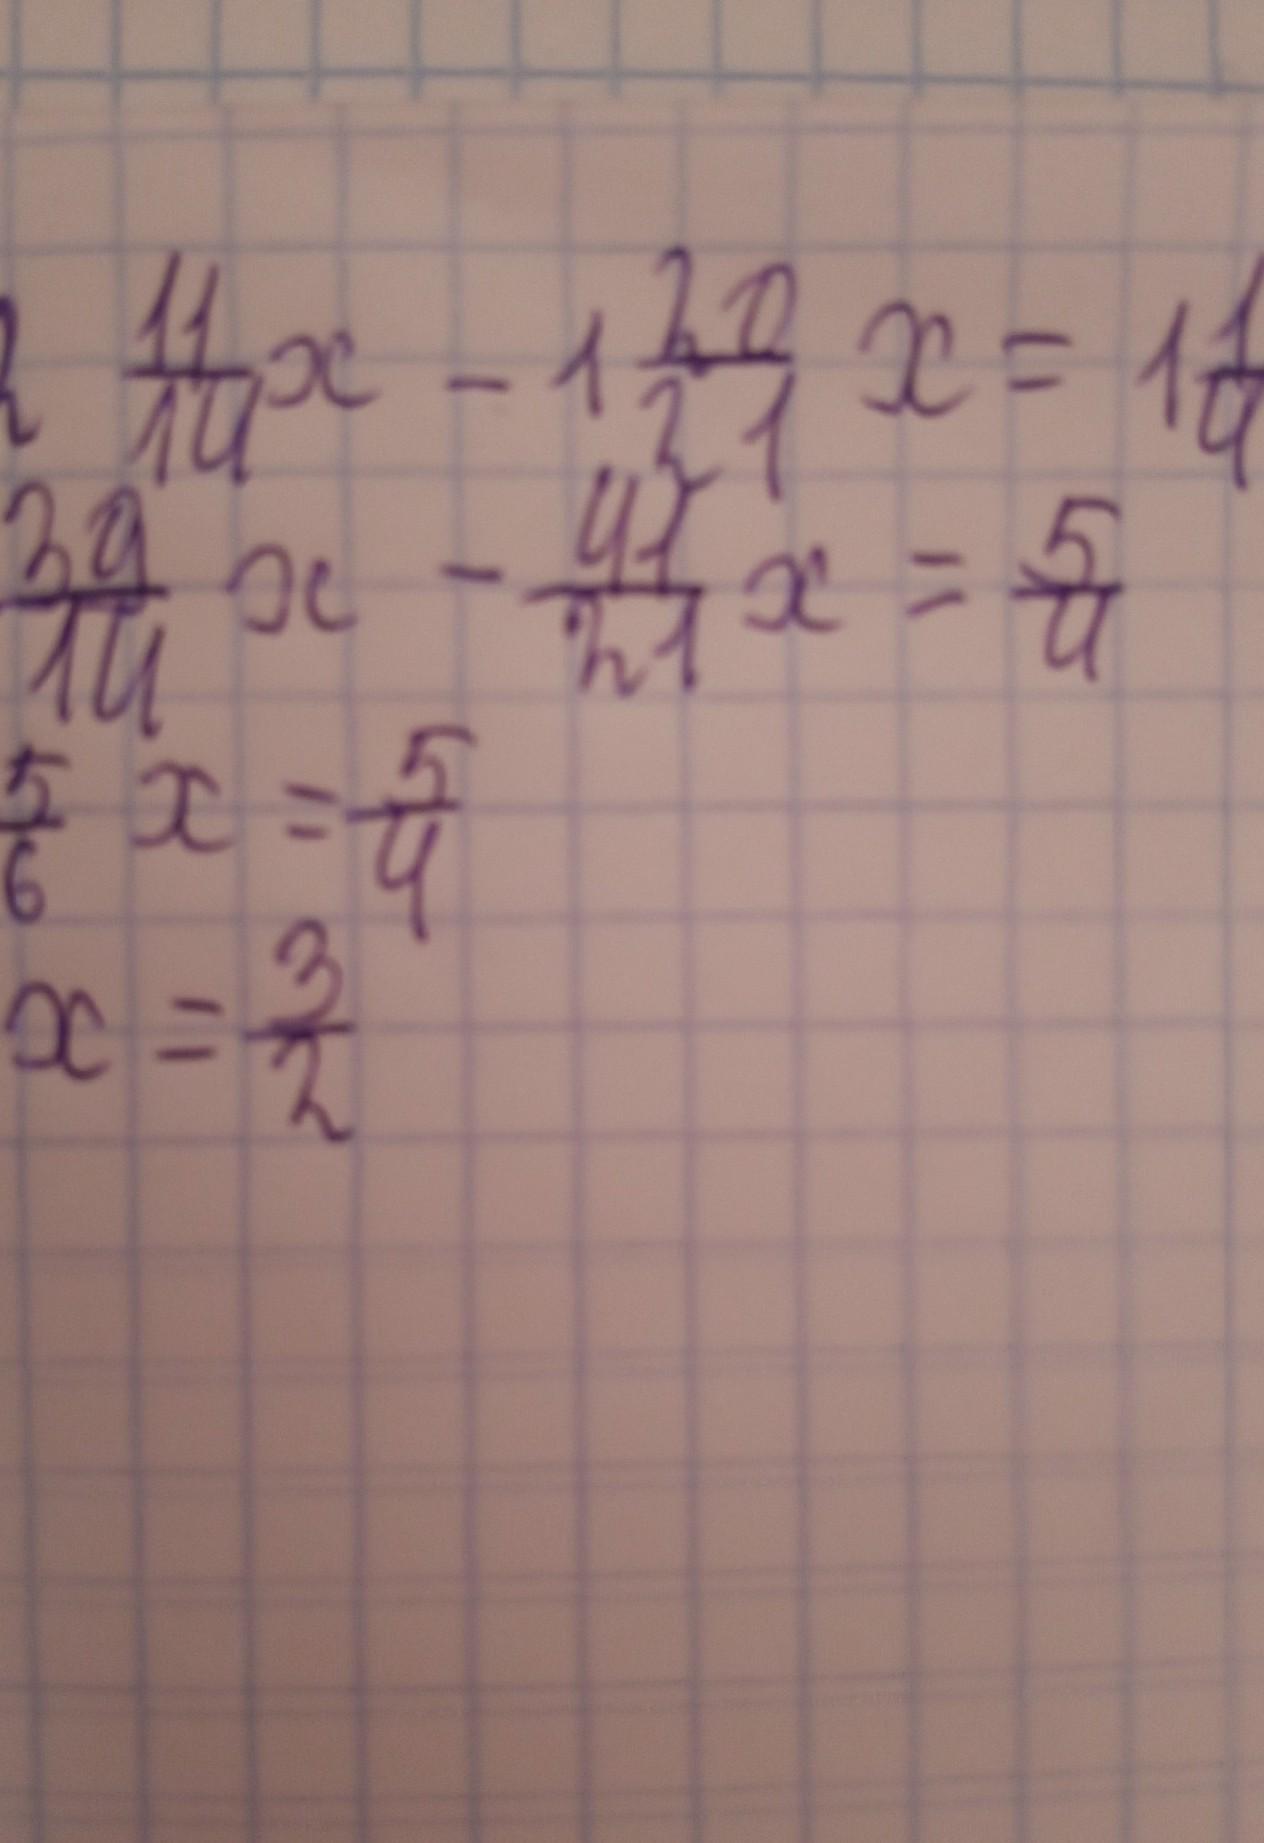 2 11/14 x - 1 20/21 x = 1 1/4
39/14 x - 41/21 x = 5/4
5/6 x = 5/4
x = 3/2